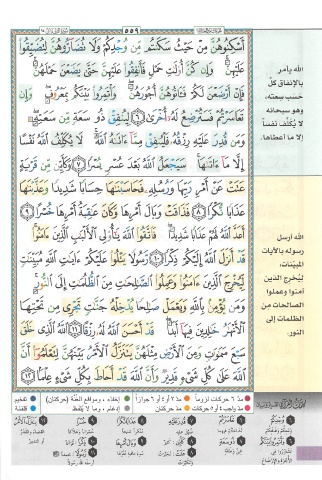 ٥٥٩
أَسْكِنُوهُنَّ مِنْ حَيْثُ سَكَنتُم مِّن وُجْدِكُمْ وَلَا تُضَآرُّوهُنَّ لِتُضَيِّقُوا۟
عَلَيْهِنَّ ۚ وَإِن كُنَّ أُو۟لَـٰتِ حَمْلٍ فَأَنفِقُوا۟ عَلَيْهِنَّ حَتَّىٰ يَضَعْنَ حَمْلَهُنَّ ۚ
فَإِنْ أَرْضَعْنَ لَكُمْ فَـَٔاتُوهُنَّ أُجُورَهُنَّ ۖ وَأْتَمِرُوا۟ بَيْنَكُم بِمَعْرُوفٍ ۖ وَإِن
تَعَاسَرْتُمْ فَسَتُرْضِعُ لَهُۥٓ أُخْرَىٰ ۝٦ لِيُنفِقْ ذُو سَعَةٍ مِّن سَعَتِهِۦ ۖ
وَمَن قُدِرَ عَلَيْهِ رِزْقُهُۥ فَلْيُنفِقْ مِمَّآ ءَاتَىٰهُ ٱللَّهُ ۚ لَا يُكَلِّفُ ٱللَّهُ نَفْسًا
إِلَّا مَآ ءَاتَىٰهَا ۚ سَيَجْعَلُ ٱللَّهُ بَعْدَ عُسْرٍ يُسْرًا ۝٧ وَكَأَيِّن مِّن قَرْيَةٍ
عَتَتْ عَنْ أَمْرِ رَبِّهَا وَرُسُلِهِۦ فَحَاسَبْنَـٰهَا حِسَابًا شَدِيدًا وَعَذَّبْنَـٰهَا
عَذَابًا نُّكْرًا ۝٨ فَذَاقَتْ وَبَالَ أَمْرِهَا وَكَانَ عَـٰقِبَةُ أَمْرِهَا خُسْرًا ۝٩
أَعَدَّ ٱللَّهُ لَهُمْ عَذَابًا شَدِيدًا ۖ فَٱتَّقُوا۟ ٱللَّهَ يَـٰٓأُو۟لِى ٱلْأَلْبَـٰبِ ٱلَّذِينَ ءَامَنُوا۟ ۚ
قَدْ أَنزَلَ ٱللَّهُ إِلَيْكُمْ ذِكْرًا ۝١٠ رَّسُولًا يَتْلُوا۟ عَلَيْكُمْ ءَايَـٰتِ ٱللَّهِ مُبَيِّنَـٰتٍ
لِّيُخْرِجَ ٱلَّذِينَ ءَامَنُوا۟ وَعَمِلُوا۟ ٱلصَّـٰلِحَـٰتِ مِنَ ٱلظُّلُمَـٰتِ إِلَى ٱلنُّورِ ۚ
وَمَن يُؤْمِنۢ بِٱللَّهِ وَيَعْمَلْ صَـٰلِحًا يُدْخِلْهُ جَنَّـٰتٍ تَجْرِى مِن تَحْتِهَا
ٱلْأَنْهَـٰرُ خَـٰلِدِينَ فِيهَآ أَبَدًا ۖ قَدْ أَحْسَنَ ٱللَّهُ لَهُۥ رِزْقًا ۝١١ ٱللَّهُ ٱلَّذِى خَلَقَ
سَبْعَ سَمَـٰوَٰتٍ وَمِنَ ٱلْأَرْضِ مِثْلَهُنَّ يَتَنَزَّلُ ٱلْأَمْرُ بَيْنَهُنَّ لِتَعْلَمُوٓا۟ أَنَّ
ٱللَّهَ عَلَىٰ كُلِّ شَىْءٍ قَدِيرٌ وَأَنَّ ٱللَّهَ قَدْ أَحَاطَ بِكُلِّ شَىْءٍ عِلْمًا ۝١٢
الله يأمر
بالإنفاق كلٌ
حسب سعته،
وهو سبحانه
لا يُكلّف نفساً
إلا ما أعطاها.
الله أرسل
رسوله بالآيات
المبيّنات،
ليُخرج الذين
آمنوا وعملوا
الصالحات من
الظلمات إلى
النور.
مدّ ٦ حركات لزوماً
مدّ ٢ أو ٤ أو ٦ جوازاً
إخفاء، ومواقع الغُنَّة (حركتان)
تفخيم
مدّ واجب ٤ أو ٥ حركات
مدّ حركتان
إدغام، وما لا يُلفظ
قلقلة